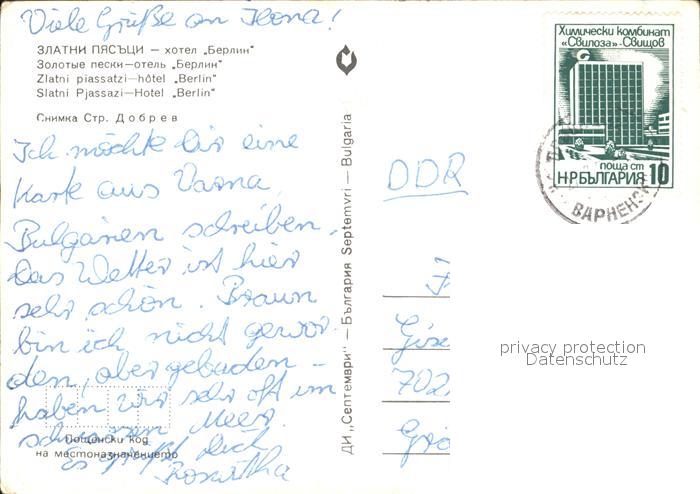 Viele Grüße an Ilona!
ЗЛАТНИ ПЯСЪЦИ — хотел „Берлин“
Золотые пески—отель „Берлин“
Zlatni piassatzi—hôtel „Berlin“
Slatni Pjassazi—Hotel „Berlin“
Снимка Стр. Добрев
Ich möchte dir eine
Karte aus Varna,
Bulgarien schreiben.
Das Wetter ist hier
sehr schön. Braun
bin ich nicht gewor-
den, aber gebaden –
haben wir sehr oft im
schwarzen Meer.
Es grüßt Dich
Roswitha
Пощенски код
на местоназначението
ДИ „Септември“ — България Septemvri — Bulgaria
Химически комбинат
«Свилоза»-Свищов
поща ст
НР БЪЛГАРИЯ 10
ВАРНЕНС
DDR
Gis
702
privacy protection
Datenschutz